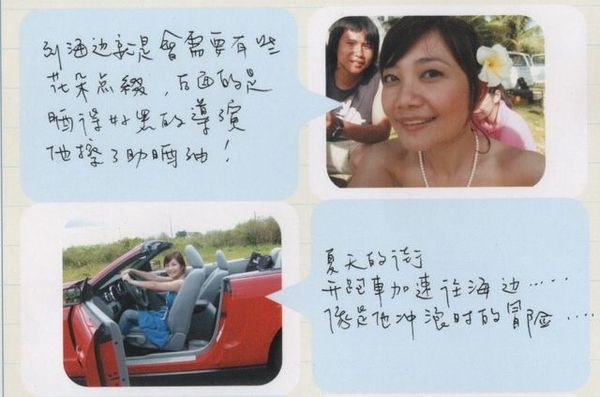 到海边就是會需要有些
花朵点缀，后面的是
晒得好黑的導演
他擦了助晒油！
夏天的街
开跑車加速往海边……
像是他冲浪时的冒险……